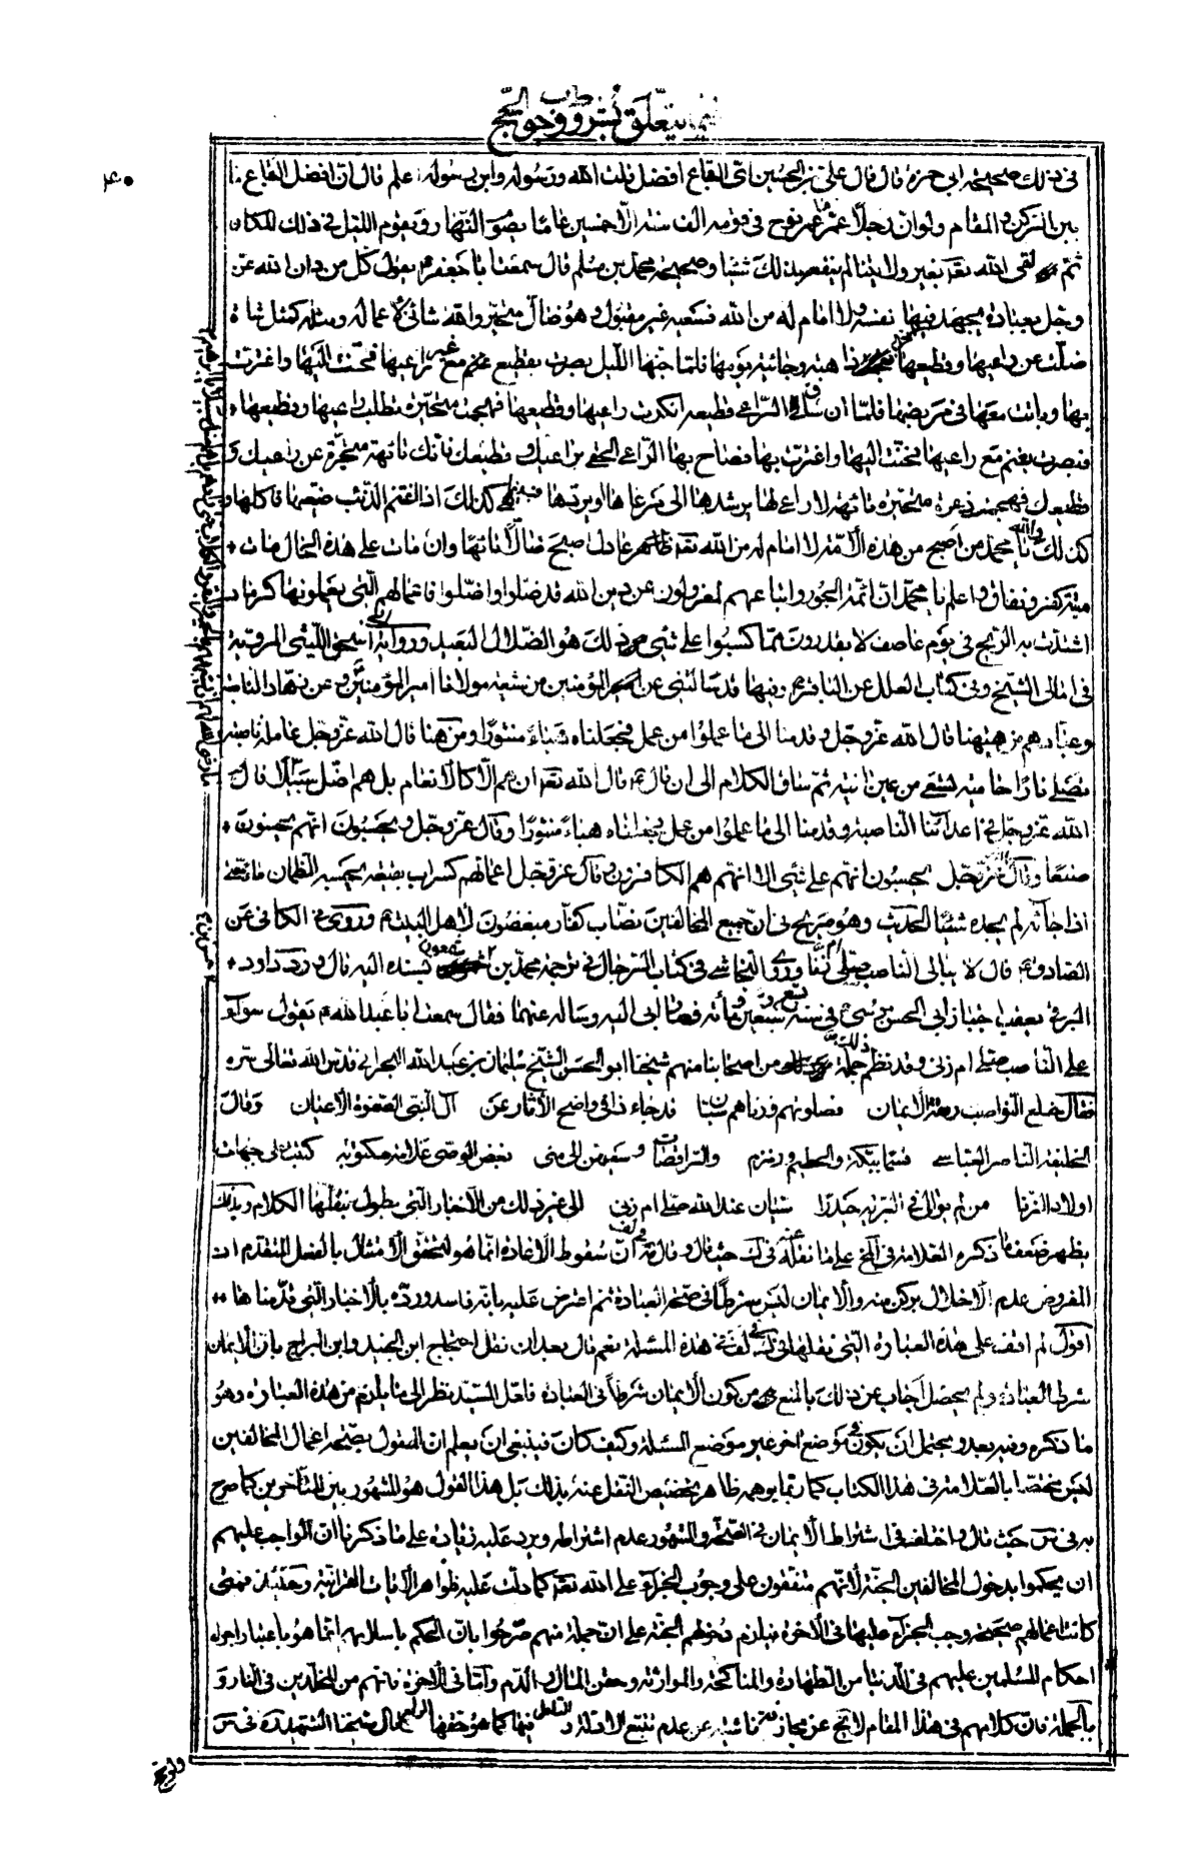 فيما يتعلق بشروط وجوب الحج
٤٠
في ذلك صحيحة ابي حمزة قال قال علي بن الحسين اي البقاع افضل قلت الله ورسوله وابن رسوله اعلم قال ان افضل البقاع ما
بين الركن والمقام ولو ان رجلا عمر ما عمر نوح في قومه الف سنة الا خمسين عاما يصوم النهار ويقوم الليل في ذلك المكان
ثم لقى الله تعه بغير ولايتنا لم ينفعه ذلك شيئا وصحيحة محمد بن مسلم قال سمعت ابا جعفر ع يقول كل من دان الله عز
وجل بعبادة يجهد فيها نفسه ولا امام له من الله فسعيه غير مقبول وهو ضال متحير والله شانئ لاعماله ومثله كمثل شاة
ضلت عن راعيها وقطيعها ذاهبة وجائية يومها فلما جنها الليل بصرت بقطيع غنم مع غير راعيها فحنت اليها واغترت
بها وباتت معها في مربضها فلما ان ساق الراعي قطيعه انكرت راعيها وقطيعها فهجمت متحيرة تطلب راعيها وقطيعها
فبصرت بغنم مع راعيها فحنت اليها واغترت بها فصاح بها الراعي الحقي براعيك وقطيعك فانك تائهة متحيرة عن راعيك و
قطيعك فهجمت ذعرة متحيرة تائهة لا راعي لها يرشدها الى مرعاها او يردها فبينا هي كذلك اذا اغتنم الذئب ضيعتها فاكلها و
كذلك والله يا محمد من اصبح من هذه الامة لا امام له من الله تعه ظاهر عادل اصبح ضالا تائها وان مات على هذه الحال مات
ميتة كفر ونفاق واعلم يا محمد ان ائمة الجور واتباعهم لمعزولون عن دين الله قد ضلوا واضلوا فاعمالهم التي يعملونها كرماد
اشتدت به الريح في يوم عاصف لا يقدرون مما كسبوا على شيء ذلك هو الضلال البعيد ورواية ابي اسحق الليثي المروية
في امالي الشيخ وفي كتاب العلل عن الباقر ع وفيها
وعبادهم من هيهنا قال الله عز وجل وقدمنا الى ما عملوا من عمل فجعلناه هباء منثورا ومن هنا قال الله عز وجل عاملة ناصبة
تصلى نارا حامية تسقى من عين آنية ثم ساق الكلام الى ان قال ع قال الله تعه ان هم الا كالانعام بل هم اضل سبيلا قال
الله عز وجل في اعدائنا الناصبة وقدمنا الى ما عملوا من عمل فجعلناه هباء منثورا وقال عز وجل ويحسبون انهم يحسنون
صنعا وقال عز وجل يحسبون انهم على شيء الا انهم هم الكاذبون وقال عز وجل اعمالهم كسراب بقيعة يحسبه الظمان ماء حتى
اذا جائه لم يجده شيئا الحديث وهو صريح في ان جميع المخالفين نصاب كفار مبغضون لاهل البيت ع وروى في الكافي عن
الصادق ع قال لا يبالي الناصب صلى ام زنا وروى النجاشي في كتاب الرجال في ترجمة محمد بن بسنده اليه قال ورد داود
الرقي بعقب اجتياز ابي الحسن موسى ع في سنة تسع وسبعين ومأة فصار ابي اليه وسأله عنهما فقال سمعت ابا عبد الله ع يقول سواء
على الناصب صلى ام زنى وقد نظم ذلك جملة من اصحابنا منهم شيخنا ابو الحسن الشيخ سليمان بن عبد الله البحراني قدس الله تعالى سره
فقال خلع النواصب ربقة الايمان فصلوتهم وزناهم سيان قد جاء ذا في واضح الآثار عن آل النبي الصفوة الاعيان وقال
الخليفة الناصر العباسي قسما بمكة والحطيم وزمزم والراقصات وسعيهن الى منى بغض الوصي علامة مكتوبة كتبت على جبهات
اولاد الزنا من لم يوال في البرية حيدرا سيان عند الله صلى ام زنى الى غير ذلك من الاخبار التي يطول بنقلها الكلام وبذلك
يظهر ضعف ما ذكره العلامة في المخ على ما نقله عنه في ك حيث قال وقال في لف ان سقوط الاعادة انما هو لتحقق الامتثال بالفعل المتقدم اذ
المفروض عدم الاخلال بركن منه والايمان ليس شرطا في صحة العبادة ثم اعترض عليه بانه فاسد ورده بالاخبار التي قدمنا ها
اقول لم اقف على هذه العبارة التي نقلها في ك في لف في هذه المسئلة نعم قال بعد ان نقل احتجاج ابن الجنيد وابن البراج بان الايمان
شرط العبادة ولم يحصل اجاب عن ذلك بالمنع من كون الايمان شرطا في العبادة فلعل السيد نظر الى ما يلزم من هذه العبارة وهو
ما ذكره وفيه بعد ويحتمل ان يكون في موضع آخر غير موضع المسئلة وكيف كان فينبغي ان يعلم ان القول بصحة اعمال المخالفين
ليس مختصا بالعلامة في هذا الكتاب كما ربما يوهمه ظاهر تخصيص النقل عنه بذلك بل هذا القول هو المشهور بين المتأخرين كما صرح
به في س حيث قال واختلف في اشتراط الايمان في الصحة والمشهور عدم اشتراطه ويرد عليه زيادة على ما ذكرنا ان الواجب عليهم
ان يحكموا بدخول المخالفين الجنة لانهم متفقون على وجوب الجزاء على الله تعه كما دلت عليه ظواهر الآيات القرآنية وحينئذ فمتى
كانت اعمالهم صحيحة وجب الجزاء عليها في الاخرة فيلزم دخولهم الجنة على ان جملة منهم صرحوا بان الحكم باسلامهم انما هو باعتبار اجراء
احكام المسلمين عليهم في الدنيا من الطهارة والمناكحة والموارثة وحقن المال والدم واما في الاخرة فانهم من المخلدين في النار و
بالجملة فان كلامهم في هذا المقام لا يخ عن مجازفة ناشئة عن عدم تتبع الادلة والتأمل فيها كما هو حقها الرابع قال شيخنا الشهيد ره في س